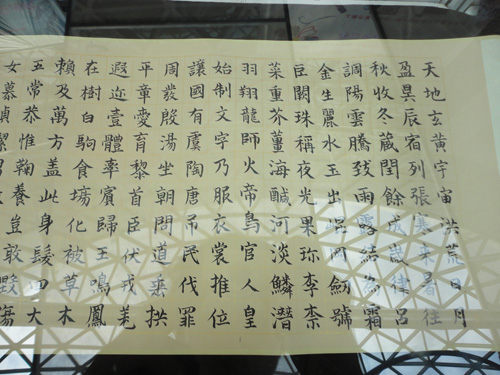 天地玄黃宇宙洪荒日月
盈昃辰宿列張寒来暑往
秋收冬蔵閏餘成歲律呂
調陽雲騰致雨露結為霜
金生麗水玉出崐岡劒號
巨闕珠稱夜光果珎李柰
菜重芥薑海鹹河淡鱗潛
羽翔龍師火帝鳥官人皇
始制文字乃服衣裳推位
讓國有虞陶唐吊民伐罪
周發殷湯坐朝問道垂拱
平章愛育黎首臣伏戎羌
遐迩壹體率賓歸王鳴鳳
在樹白駒食場化被草木
賴及萬方盖此身髮四大
五常恭惟鞠養豈敢毀傷
女慕